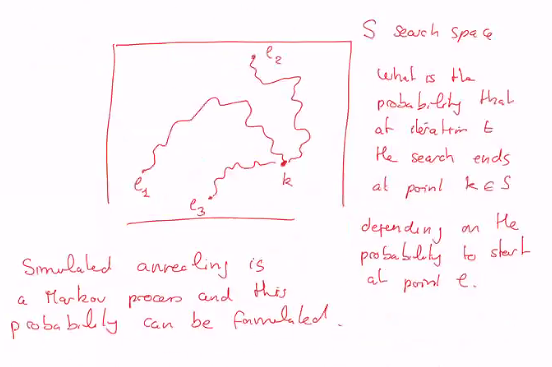 S search space
e2
e1
k
e3
What is the
probability that
at iteration t
the search ends
at point k ∈ S
depending on the
probability to start
at point e.
Simulated annealing is
a Markov process and this
probability can be formulated.